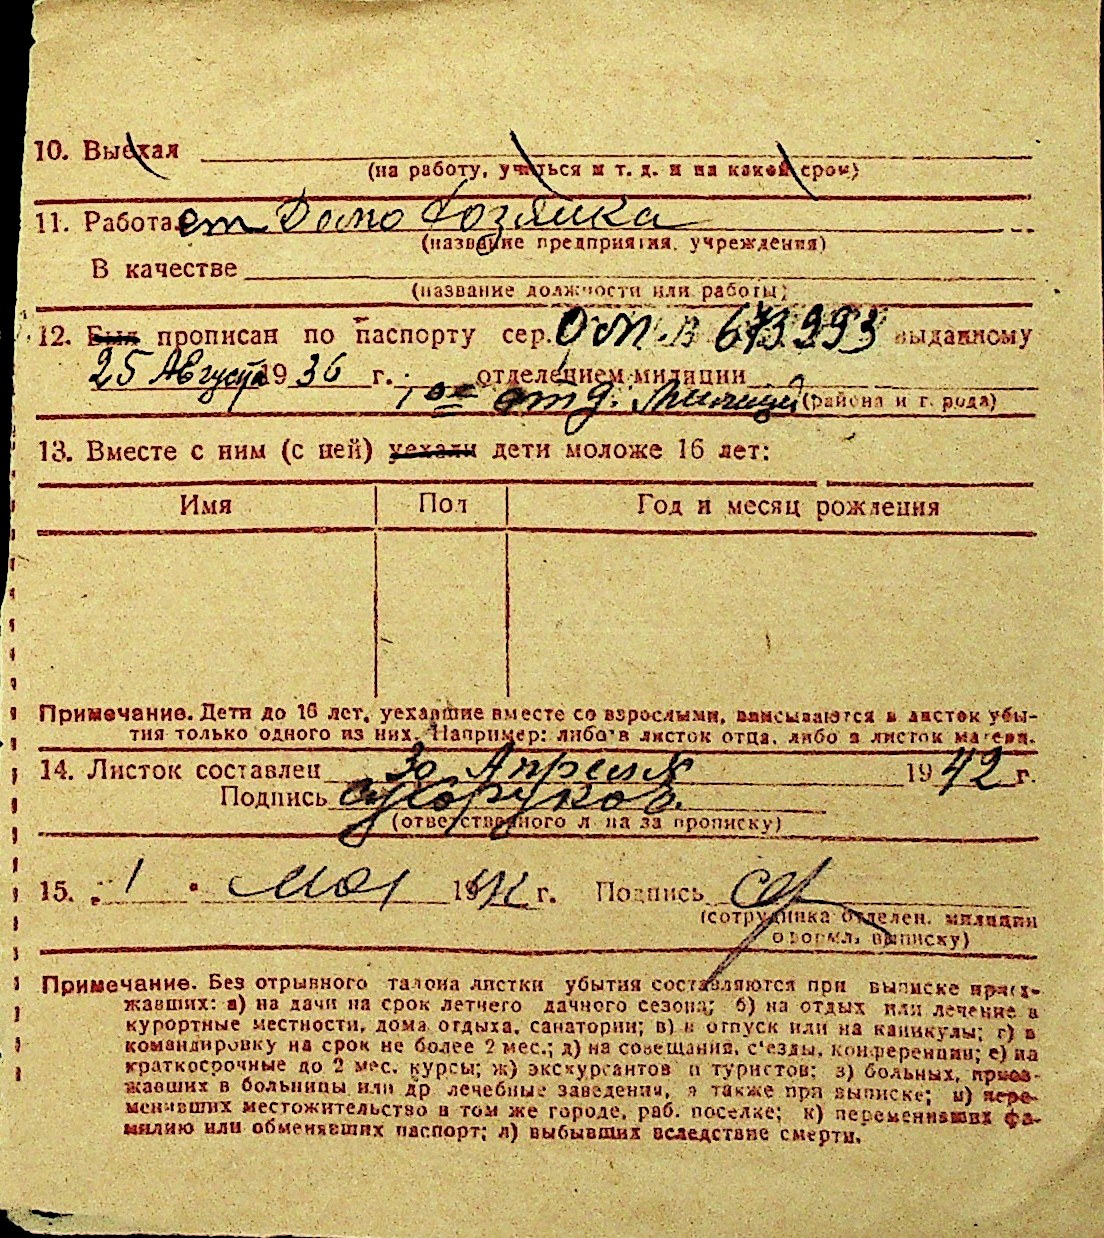 10. Выехал
(на работу, учиться и т. д. и на какой срок)
11. Работает Домо Хозяика
(название предприятия, учреждения)
В качестве
(название должности или работы)
12. Был прописан по паспорту сер. 673993 выданному
25 Августа 1936 г. отделением милиции
1ое отд. Милиции (района и города)
13. Вместе с ним (с ней) уехали дети моложе 16 лет:
Имя Пол Год и месяц рождения
Примечание. Дети до 16 лет, уехавшие вместе со взрослыми, вписываются в листок убы-
тия только одного из них. Например: либо в листок отца, либо в листок матери.
14. Листок составлен 30 Апреля 1942 г.
Подпись Сухоруков.
(ответственного лица за прописку)
15. „1" мая 1942 г. Подпись
(сотрудника отделен. милиции
оформл. выписку)
Примечание. Без отрывного талона листки убытия составляются при выписке приез-
жавших: а) на дачи на срок летнего дачного сезона; б) на отдых или лечение в
курортные местности, дома отдыха, санатории; в) в отпуск или на каникулы; г) в
командировку на срок не более 2 мес.; д) на совещания, с'езды, конференции; е) на
краткосрочные до 2 мес. курсы; ж) экскурсантов и туристов; з) больных, приез-
жавших в больницы или др лечебные заведения, а также при выписке; и) пере-
менивших местожительство в том же городе, раб. поселке; к) переменивших фа-
милию или обменявших паспорт; л) выбывших вследствие смерти.